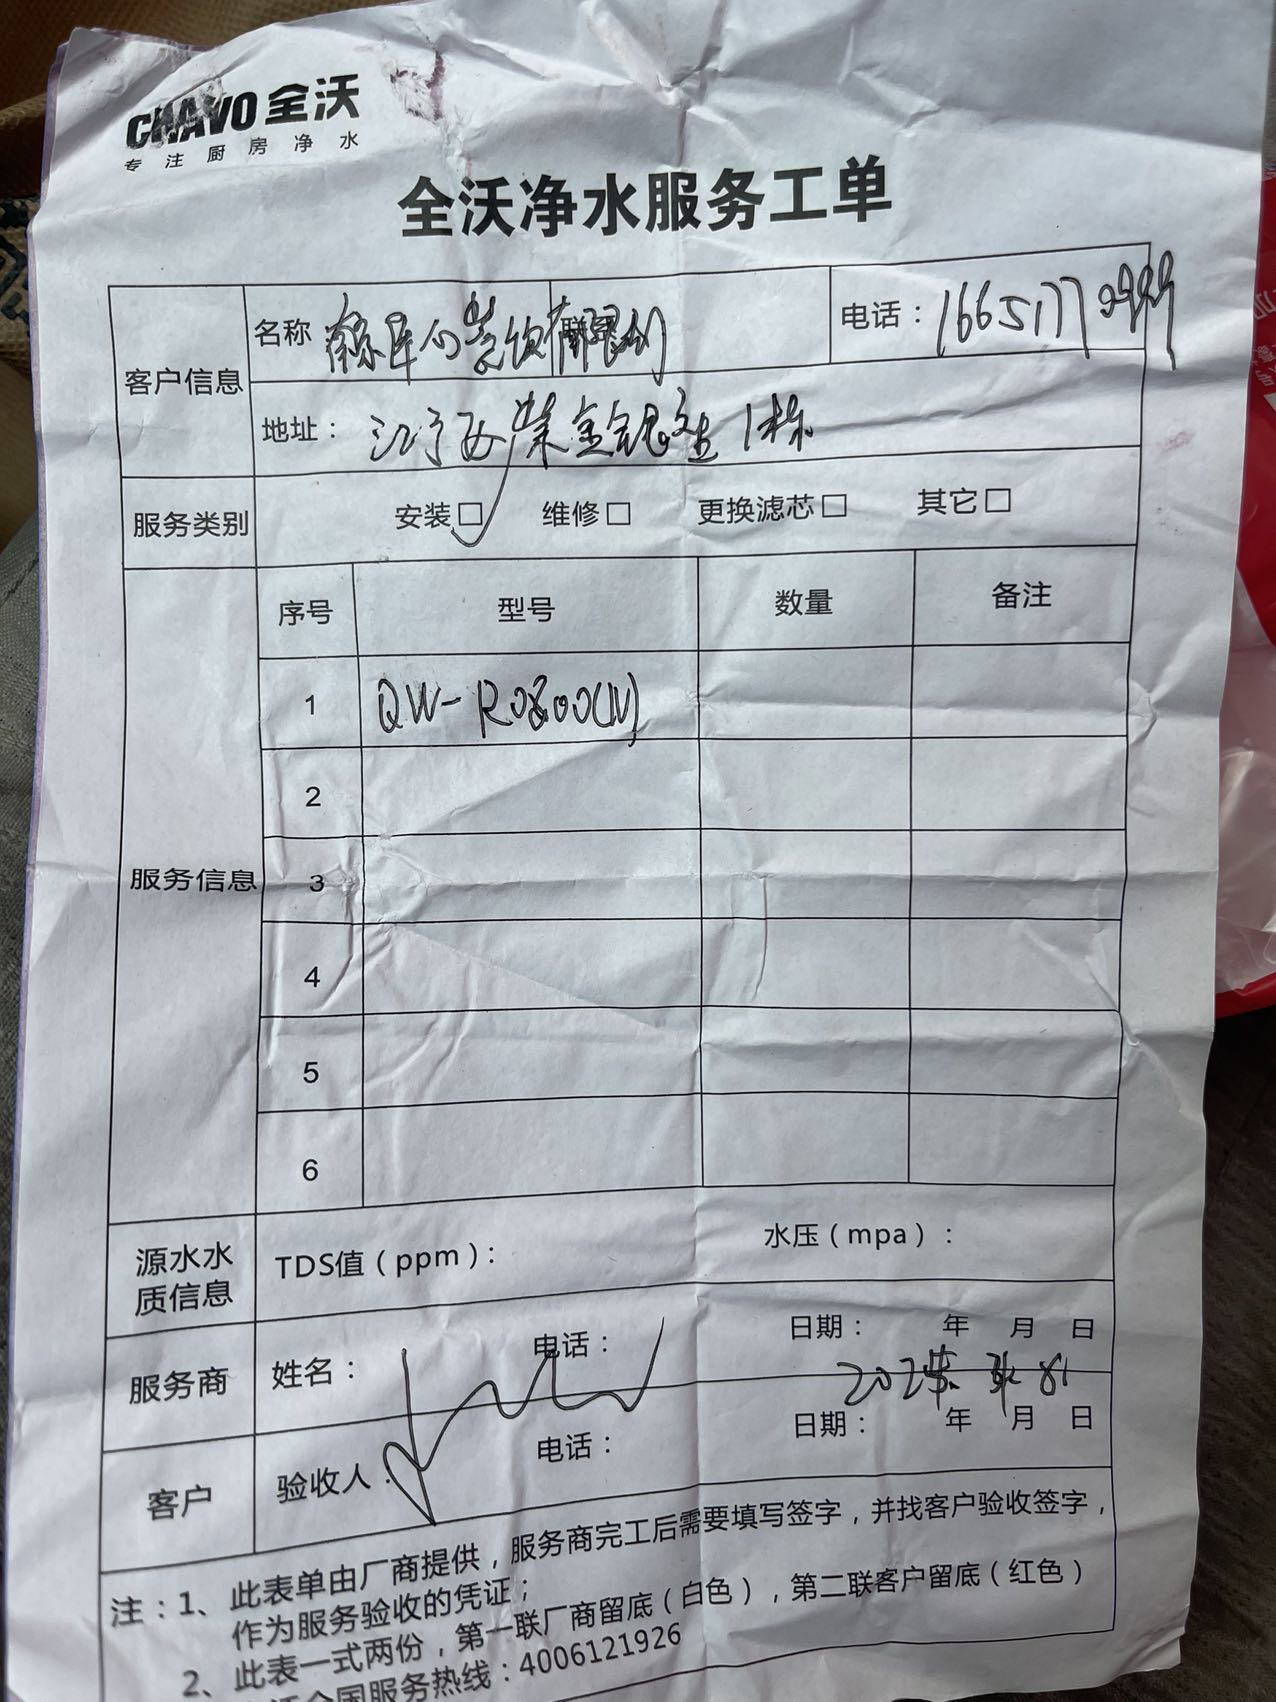 CHAVO 全沃
专注厨房净水
全沃净水服务工单
客户信息
名称
电话：1665177
地址：
1栋
服务类别
安装□ 维修□ 更换滤芯□ 其它□
服务信息
序号 型号 数量 备注
1 QW-RO800(N)
2
3
4
5
6
源水水质信息
TDS值（ppm）： 水压（mpa）：
服务商
姓名： 电话： 日期： 年 月 日
客户
验收人： 电话： 日期： 年 月 日
注：1、此表单由厂商提供，服务商完工后需要填写签字，并找客户验收签字，
作为服务验收的凭证；
2、此表一式两份，第一联厂商留底（白色），第二联客户留底（红色）
全国服务热线：4006121926